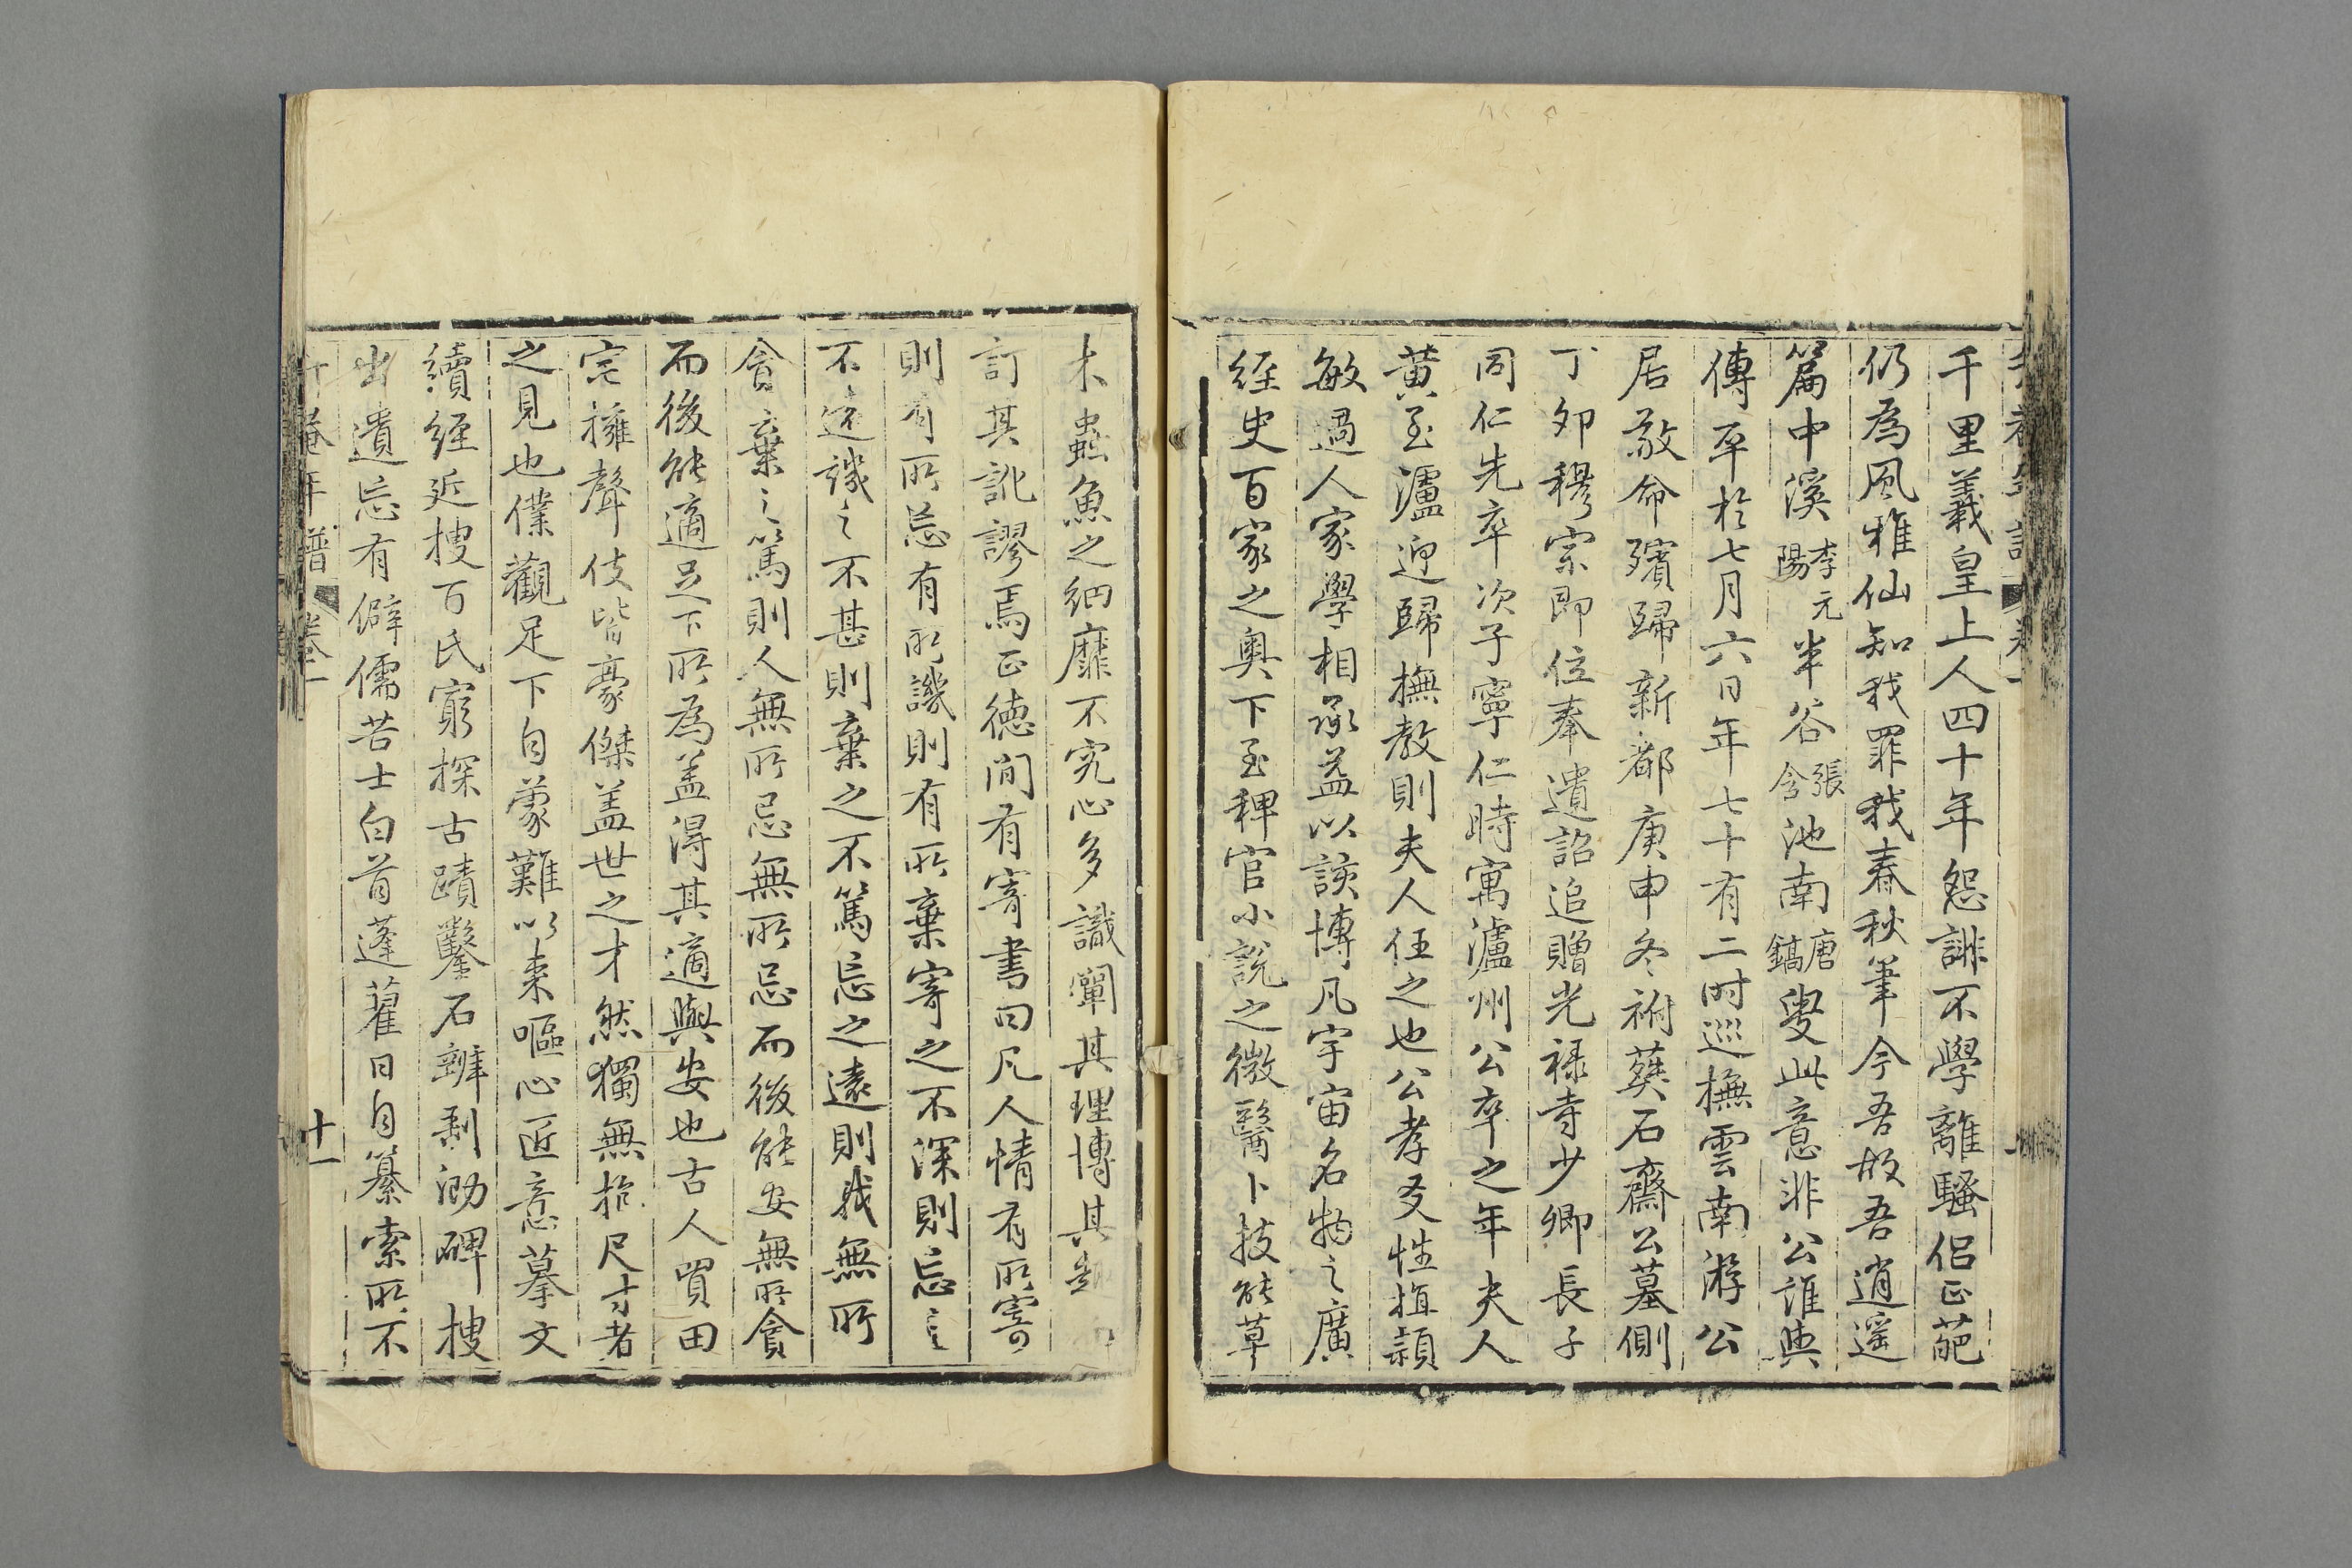 千里羲皇上人四十年怨誹不學離騷侶正葩
仍為風雅仙知我罪我春秋筆今吾故吾逍遥
篇中溪李元陽半谷張含池南唐錡叟此意非公誰與
傳卒於七月六日年七十有二时巡撫雲南游公
居敬命殯歸新都庚申冬祔葬石齋公墓側
丁卯穆宗即位奉遺詔追贈光禄寺少卿長子
同仁先卒次子寧仁時寓瀘州公卒之年夫人
黃至瀘迎歸撫教則夫人任之也公孝友性植穎
敏過人家學相承益以該博凡宇宙名物之廣
經史百家之奥下至稗官小說之微醫卜技能草
木蟲魚之細靡不究心多識闡其理博其
訂其訛謬焉正德间有寄書曰凡人情有所寄
則有所忘有所譏則有所棄寄之不深則忘之
不遠譏之不甚則棄之不篤忘之遠則我無所
貪棄之篤則人無所忌無所忌而後能安無所貪
而後能適足下所為盖得其適與安也古人買田
宅擁聲伎皆豪傑盖世之才然獨無抱尺寸者
之見也僕觀足下自蒙難以来嘔心匠意摹文
續經延搜百氏窮探古蹟鑿石辨剥泐碑搜
出遺忘有僻儒苦士白首蓬藋日自纂索所不
升菴年譜 卷一 十一